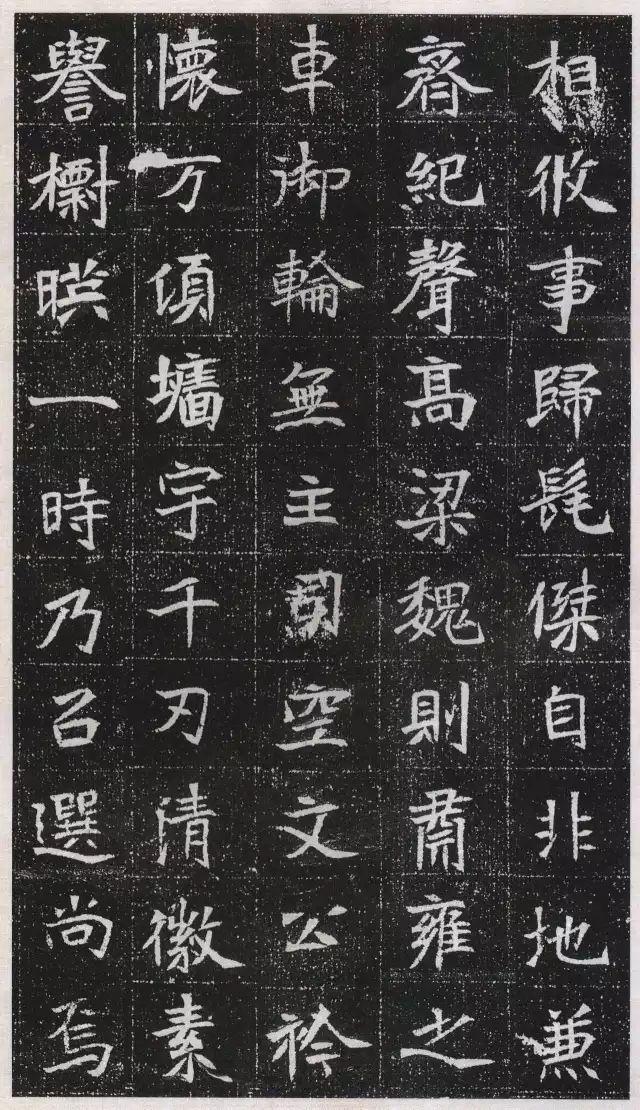 相攸事歸髦傑自非地兼
齊紀聲高梁魏則肅雍之
車御輪無主空文公衿
懷万傾墻宇千刃清徽素
譽暎一時乃召選尚焉